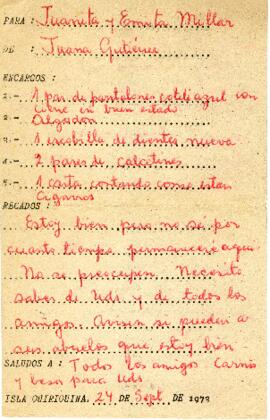 PARA : Juanita y Ernita Millar
DE : Juana Gutiérrez
ENCARGOS :
1.- 1 par de pantalones cotelé azul con
cierre en buen estado
2.- Algodon
3.- 1 escobilla de dientes nueva
4.- 2 pares de calcetines
5.- 1 carta contando como estan
Cigarros
RECADOS : Estoy bien pero no sé por
cuanto tiempo permaneceré aqui
No se preocupen. Necesito
saber de Uds. y de todos los
amigos. Avisen si pueden a
mis abuelos que estoy bien
SALUDOS A : Todos los amigos Cariños
y besos para uds.
ISLA QUIRIQUINA, 24 DE Sept. DE 1973